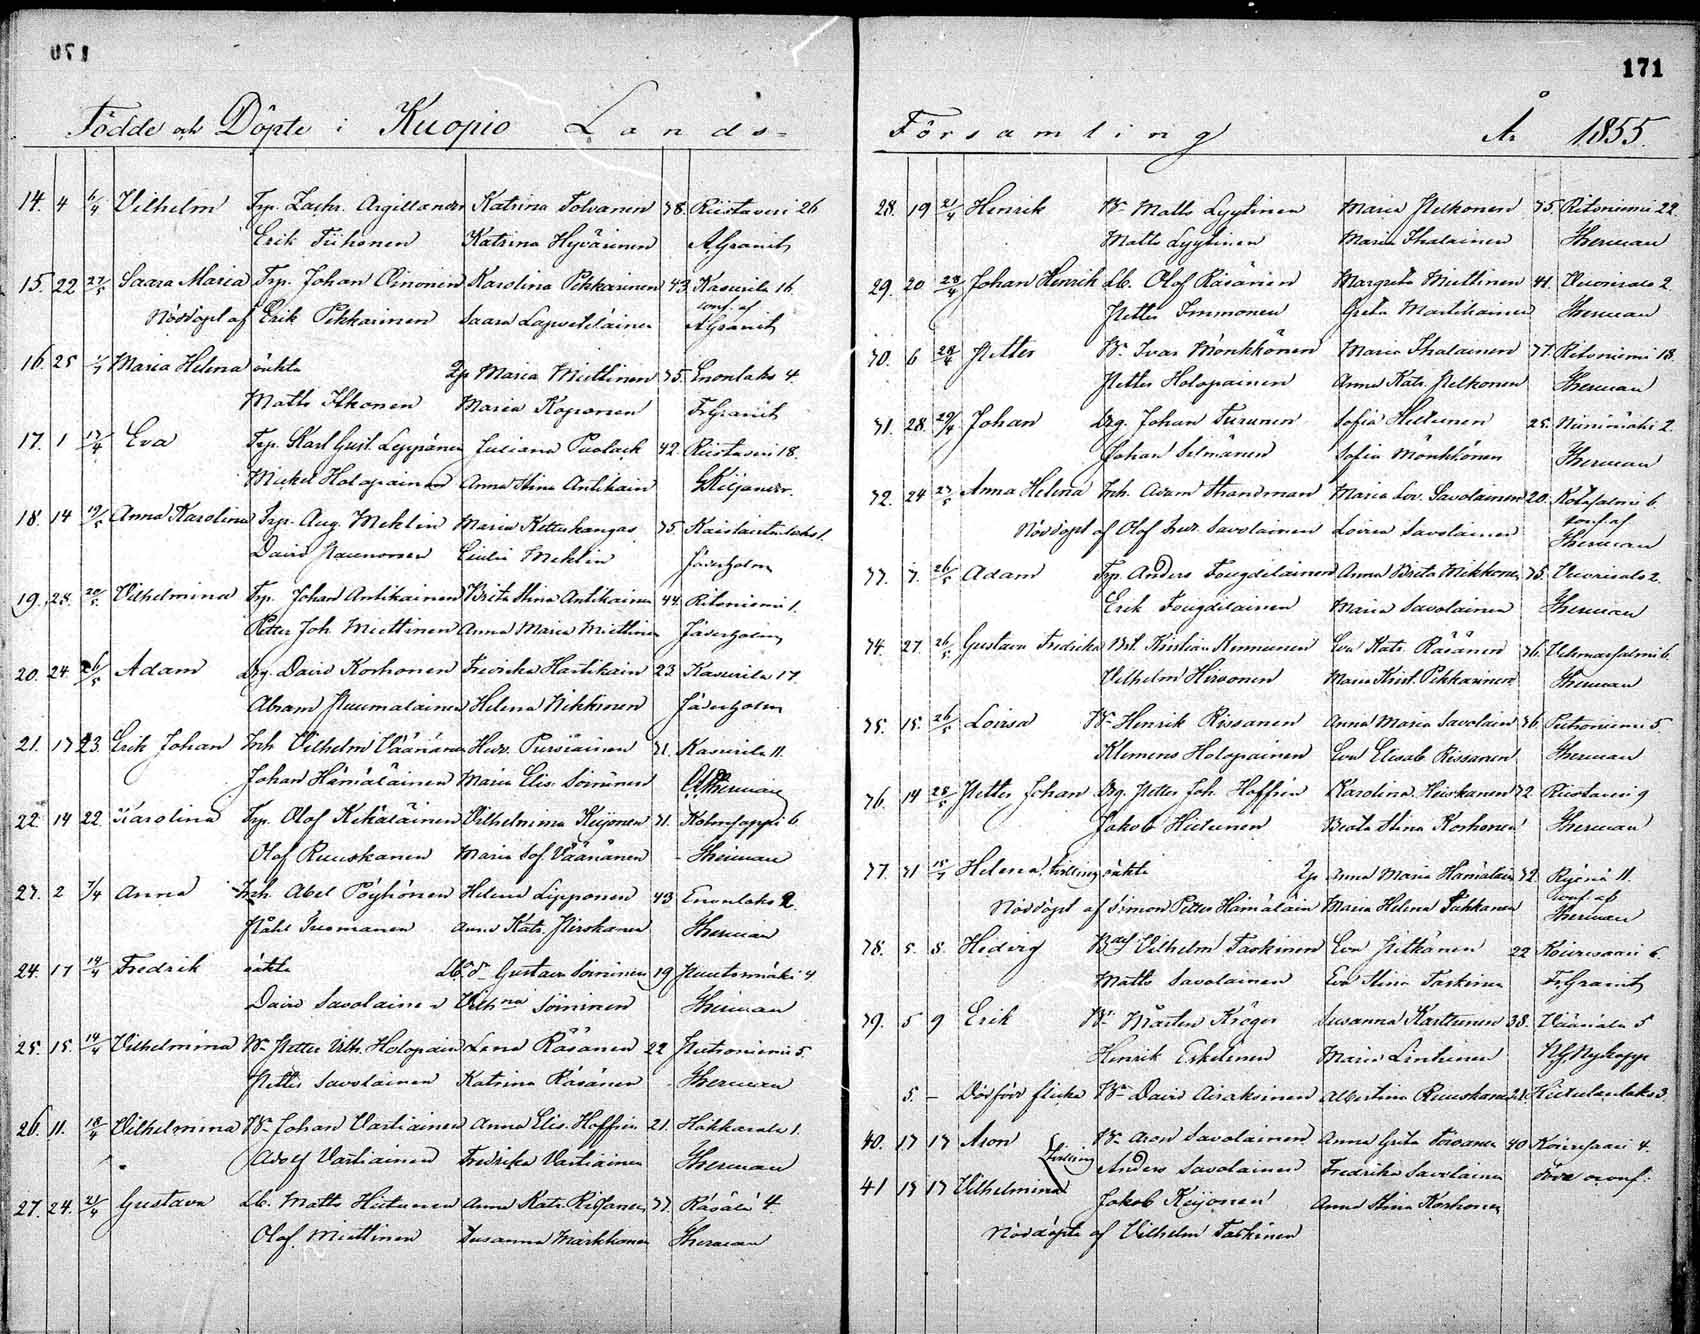 170
Födde och Döpte i Kuopio Lands-
14. 4 6/4 Vilhelm Trp. Zachr. Argillander Katrina Tolvanen 38. Riistavesi 26
Erik Tiihonen Katrina Hyvärinen A. Granit
15. 22 27/5 Saara Maria Trp. Johan Oinonen Karolina Pekkarinen 43. Kasurila 16.
conf. af
Nöddöpt af Erik Pekkarinen Saara Lapveteläinen A Granit
16. 25 Maria Helena oäkta Maria Miettinen 35. Enonlaks 4.
Matts Itkonen Maria Koponen Fr Granit
17. 1 17/4 Eva Trp. Karl Gust. Leppänen Juliana Puolack 42. Riistavesi 18.
Mickel Holopainen Anna Stina Antikain G Kiljander.
18. 14 19/5 Anna Karolina Trp. Aug. Mehlin Maria Kettukangas 35.
David Naumonen Cecilia Mehlin Jäderholm
19. 28. 20/5 Vilhelmina Trp. Johan Antikainen Brita Stina Antikainen 44. Ritoniemi 1.
Petter Joh. Miettinen Anna Maria Miettinen Jäderholm
20. 24. 26/5 Adam Drg. David Korhonen Fredrika Hartikain 23. Kasurila 17.
Abram Naumalainen Helena Nikkinen Jäderholm
21. 17 23 Erik Johan Inh. Vilhelm Väänänen Hedv. Pursiainen 31. Kasurila 11.
Johan Hämäläinen Maria Elis. Soininen Østherman
22. 14 22. Karolina Trp. Olof Kekäläinen Vilhelmina Keijonen 31. Kolmisoppi 6
Olof Ruuskanen Maria Sof. Väänänen - Østherman
23. 2 7/4 Anna Inh. Abel Pöyhönen Helena Lipponen 43. Enonlaks 2.
Påhl Tuomanen Anna Katr. Pirskanen
24. 17 19/4 Fredrik oäkta Gustava Soininen 19 Puutosmäki 4
David Savolainen Vilhna Soininen
25. 15. 19/4 Vilhelmina Bn Petter Vilh. Holopain Lena Räsänen 22 Putroniemi 5.
Petter Savolainen Katrina Räsänen
26. 11. 18/4 Vilhelmina Bn Johan Vartiainen Anna Elis. Hoffrén 21. Hakkarala 1.
Adolf Vartiainen Fredrika Vartiainen
27. 24. 21/4 Gustava Lb. Matts Hiltunen Anna Katr. 33. Räsälä 4.
Olof Miettinen Susanna Markkonen
171
Församling År 1855.
28. 19 21/4 Henrik Bn Matts Lyytinen Maria Pelkonen 35. Ritoniemi 22.
Matts Lyytinen Maria Ihalainen
29. 20 28/4 Johan Henrik Lb. Olof Räsänen Margreta Miettinen 41. Vuorisalo 2.
Petter Immonen Greta Martikainen
30. 6 28/4 Petter Bn Ivar Mönkkönen Maria Ihalainen 37. Ritoniemi 18.
Petter Holopainen Anna Katr. Pelkonen
31. 28. 29/4 Johan Drg. Johan Turunen Sofia Hiltunen 25. Niinimäki 2.
Johan Selmänen Sofia Mönkkönen
32. 24 27/5 Anna Helena Inh. Adam Strandman Maria Lov. Savolainen 20. 6.
conf. af
Nöddöpt af Olof Fredr. Savolainen Lovisa Savolainen
33. 7. 26/5 Adam Trp. Anders Tougdelainen Anna Brita Mikkonen 35. Vuorisalo 2.
Erik Tougdelainen Maria Savolainen
34. 27. 26/5 Gustava Fredrika Kristian Kemunen Eva Katr. Räsänen 36. Vehmasjalmi 6.
Vilhelm Hirvonen Maria Krist. Pekkarinen
35. 15. 26/5 Lovisa Bn Henrik Rissanen Anna Maria Savolain 36. Putroniemi 5.
Klemens Holopainen Eva Elisab. Rissanen
36. 14 28/5 Petter Johan Drg. Petter Joh. Hoffrén Karolina Heiskanen 32. Riistavesi 9
Jakob Hiltunen Beata Stina Korhonen
37. 31 Helena, tvilling oäkta Anna Maria Hämäläin 32. Ryönä 11.
conf. af
Nöddöpt af Simon Petter Hämäläin Maria Helena Tukkanen
38. 5. 8. Hedvig Vilhelm Taskinen Eva Pitkänen 22 Koivusaari 6.
Matts Savolainen Eva Stina Taskinen Fr Granit
39. 5 9 Erik Bn Mårten Kröger Susanna Karttunen 38. Väänälä 5
Henrik Eskelinen Maria Lintunen Nykopp
5. - Dödfödd flicka Bn David Airaksinen Albertina Ruuskanen 21. Hietulanlaks 3.
40. 17 17 Aron Bn Aron Savolainen Anna Greta Toivanen 40 Koivusaari 4.
Tvilling Anders Savolainen Fredrika Savolainen
41 17 17 Vilhelmina Jakob Keijonen Anna Stina Korhonen
Nöddöpte af Vilhelm Taskinen